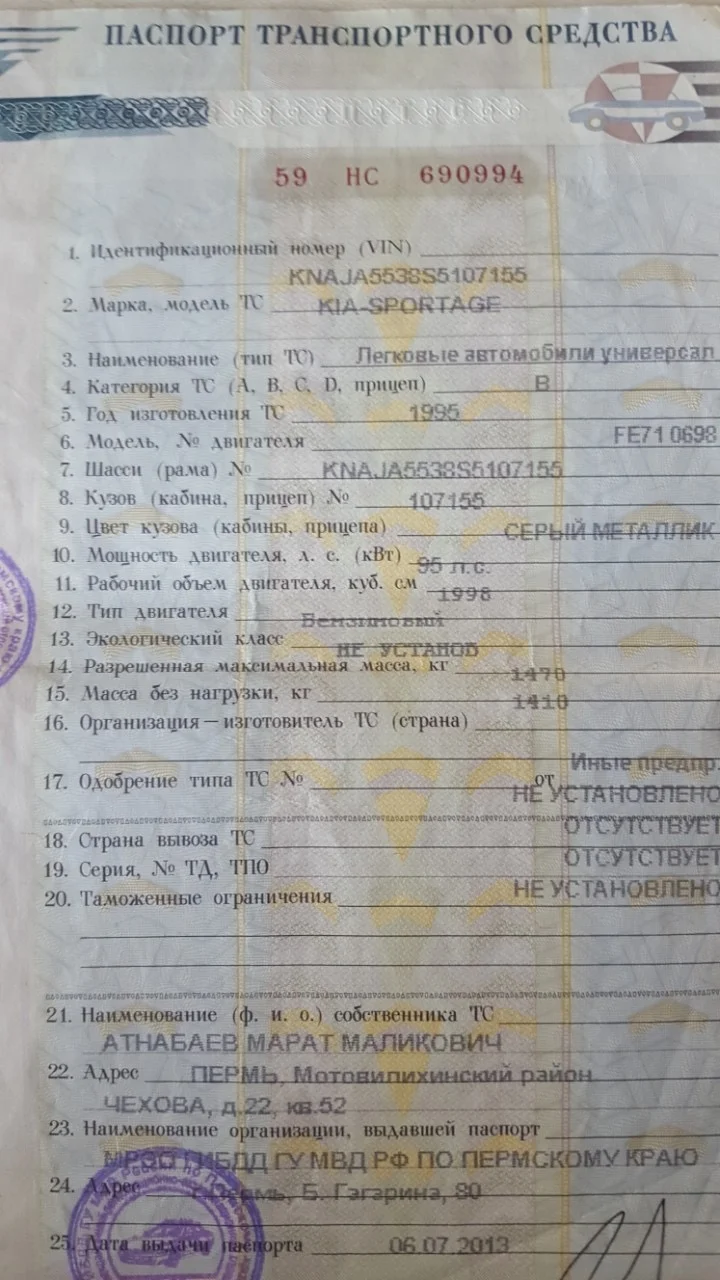 ПАСПОРТ ТРАНСПОРТНОГО СРЕДСТВА
59 НС 690994
1. Идентификационный номер (VIN)
KNAJA5538S5107155
2. Марка, модель ТС KIA-SPORTAGE
3. Наименование (тип ТС) Легковые автомобили универсал
4. Категория ТС (А, В, С, D, прицеп) В
5. Год изготовления ТС 1995
6. Модель, № двигателя FE71 0698
7. Шасси (рама) № KNAJA5538S5107155
8. Кузов (кабина, прицеп) № 107155
9. Цвет кузова (кабины, прицепа) СЕРЫЙ МЕТАЛЛИК
10. Мощность двигателя, л. с. (кВт) 95 л.с.
11. Рабочий объем двигателя, куб. см 1998
12. Тип двигателя Бензиновый
13. Экологический класс НЕ УСТАНОВ
14. Разрешенная максимальная масса, кг 1470
15. Масса без нагрузки, кг 1410
16. Организация – изготовитель ТС (страна)
Иные предпр.
17. Одобрение типа ТС № от
НЕ УСТАНОВЛЕНО
18. Страна вывоза ТС ОТСУТСТВУЕТ
19. Серия, № ТД, ТПО ОТСУТСТВУЕТ
20. Таможенные ограничения НЕ УСТАНОВЛЕНО
21. Наименование (ф. и. о.) собственника ТС
АТНАБАЕВ МАРАТ МАЛИКОВИЧ
22. Адрес ПЕРМЬ, Мотовилихинский район
ЧЕХОВА, д.22, кв.52
23. Наименование организации, выдавшей паспорт
МРЭО ГИБДД ГУ МВД РФ ПО ПЕРМСКОМУ КРАЮ
24. Адрес г.Пермь, Б. Гагарина, 80
25. Дата выдачи паспорта 06.07.2013